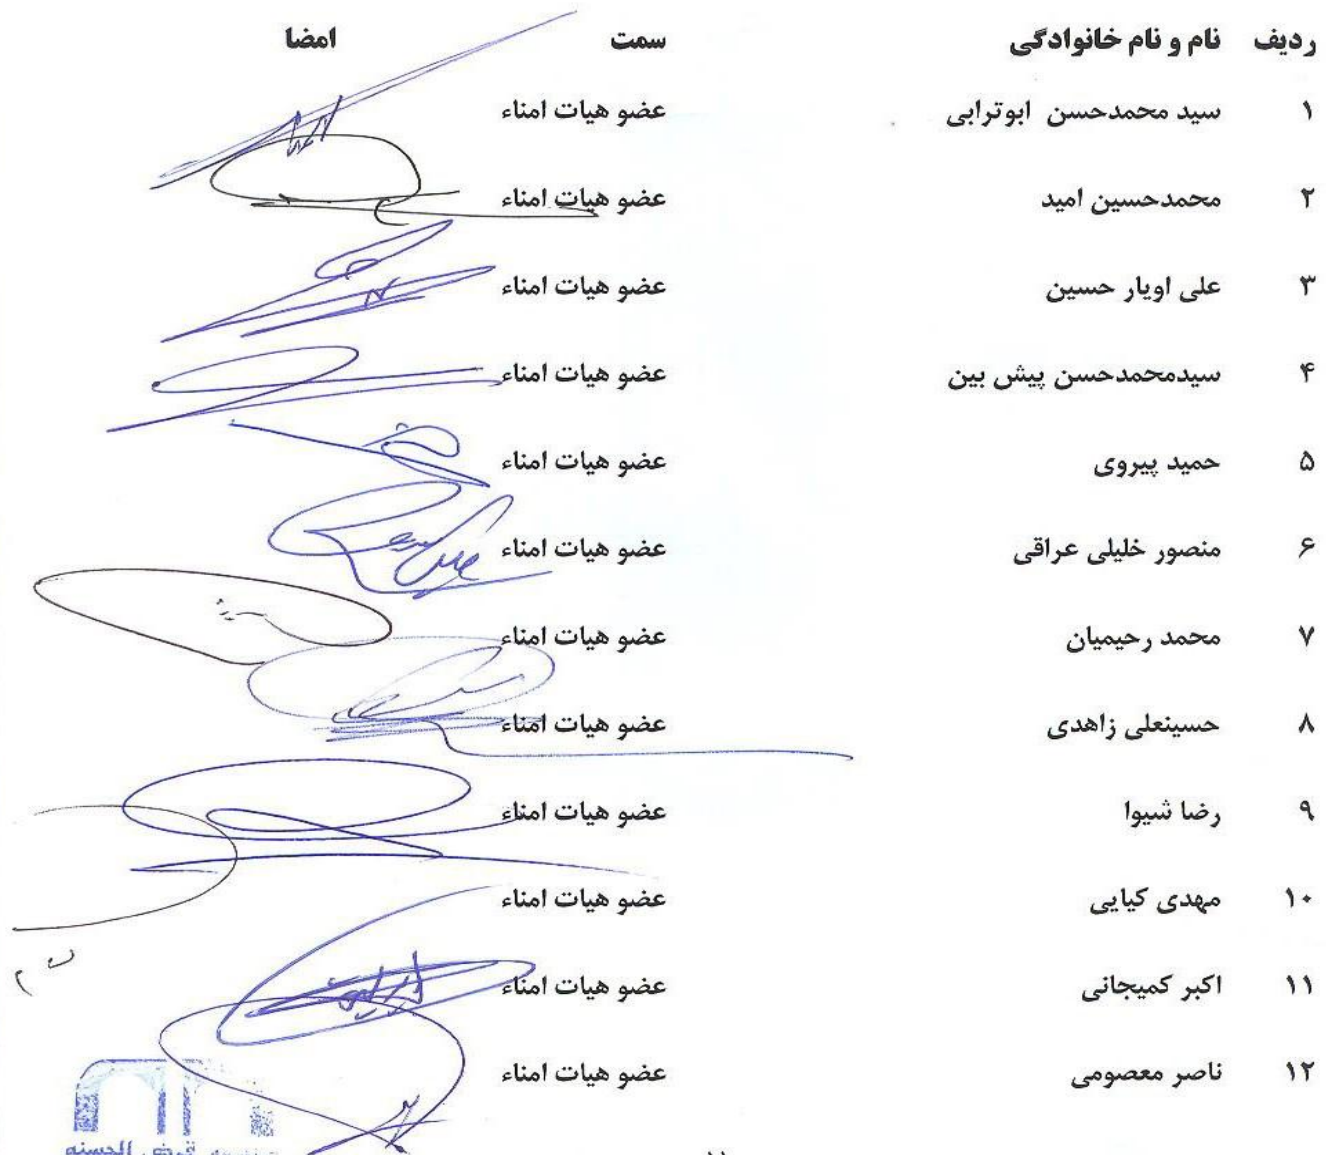 ردیف نام و نام خانوادگی سمت امضا
۱ سید محمدحسن ابوترابی عضو هیات امناء
۲ محمدحسین امید عضو هیات امناء
۳ علی اویار حسین عضو هیات امناء
۴ سیدمحمدحسن پیش بین عضو هیات امناء
۵ حمید پیروی عضو هیات امناء
۶ منصور خلیلی عراقی عضو هیات امناء
۷ محمد رحیمیان عضو هیات امناء
۸ حسینعلی زاهدی عضو هیات امناء
۹ رضا شیوا عضو هیات امناء
۱۰ مهدی کیایی عضو هیات امناء
۱۱ اکبر کمیجانی عضو هیات امناء
۱۲ ناصر معصومی عضو هیات امناء
قرض الحسنه